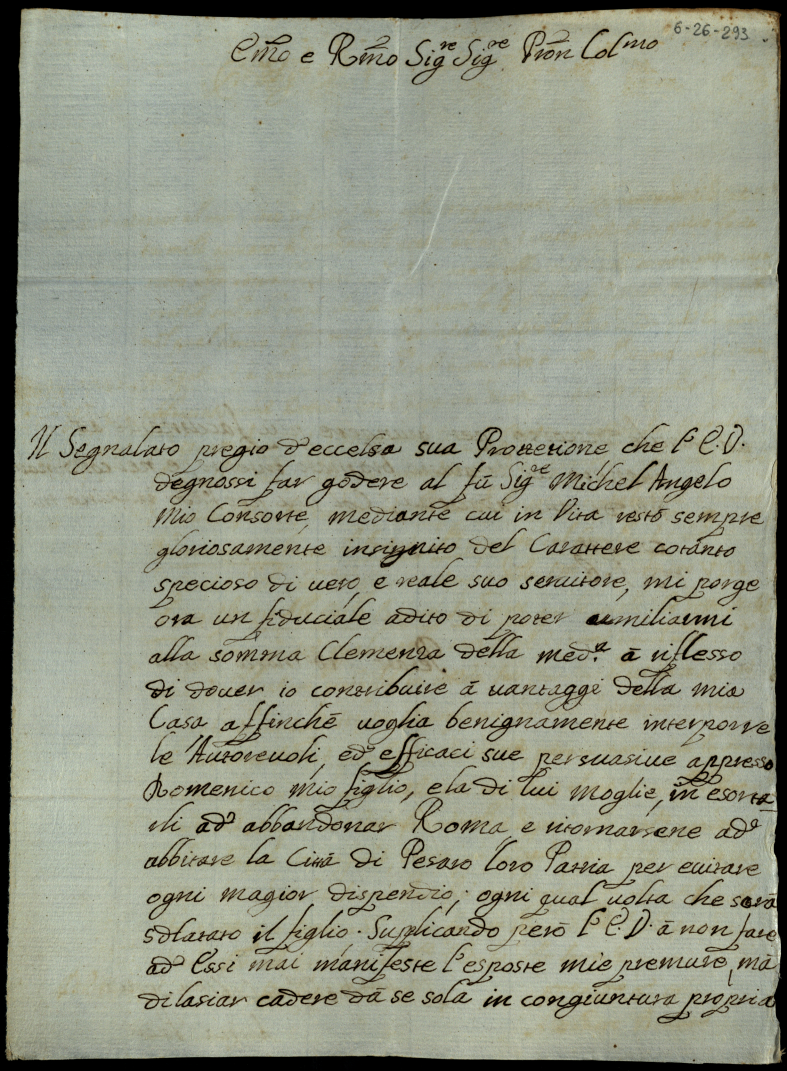 6-26-293
Em̃o e Rm̃o Sig.re Sig.re Pron Col.mo
Il Segnalato pregio d'eccelsa sua Protetione che l'E.V.
degnossi far godere al fù Sig.re Michel Angelo
Mio Consorte, mediante cui in Vita restò sempre
gloriosamente insignito del Carattere cotanto
specioso di uero, e reale suo seruitore, mi porge
ora un fiduciale adito di poter aumiliarmi
alla somma Clemenza della med.a à riflesso
di douer io contribuire à uantaggi della mia
Casa affinchè uoglia benignamente interporre
le Autoreuoli, ed' efficaci sue persuasiue appresso
Domenico mio figlio, e la di lui moglie, in esorta
rli ad' abbandonar Roma, e ritornarsene ad'
abbitare la Città di Pesaro loro Patria per euitare
ogni magior dispendio; ogni qual uolta che sarà
sdlatato il figlio. Suplicando però l'E.V. à non fare
ad' Essi mai manifeste l'esposte mie premure, mà
di lasiar cadere dà se sola in congiuntura propria